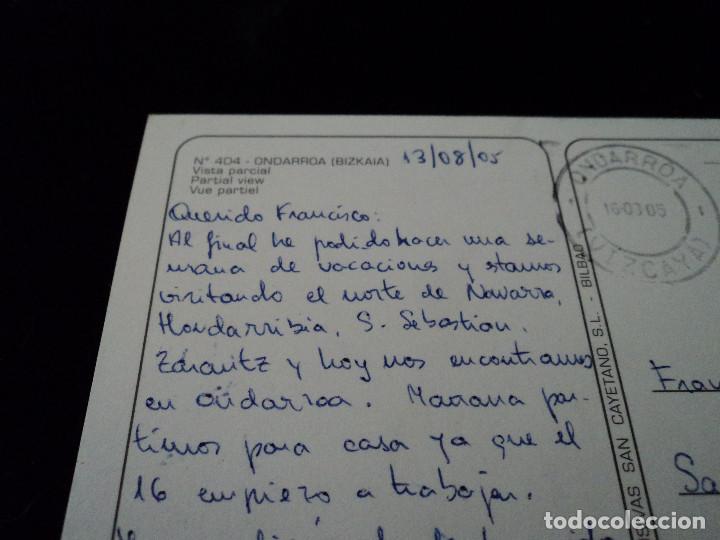 Nº 404 - ONDARROA (BIZKAIA) 13/08/05
Vista parcial
Partial view
Vue partiel
Querido Francisco:
Al final he podido hacer una se-
mana de vacaciones y stamos
visitando el norte de Navarra,
Hondarribia, S. Sebastian.
Zarautz y hoy nos encontramos
en Ondarroa. Manana par-
timos para casa ya que el
16 empiezo a trabajar.
ONDARROA
(VIZCAYA)
SAN CAYETANO, S.L. - BILBAO
Fran
Sa
todocoleccion